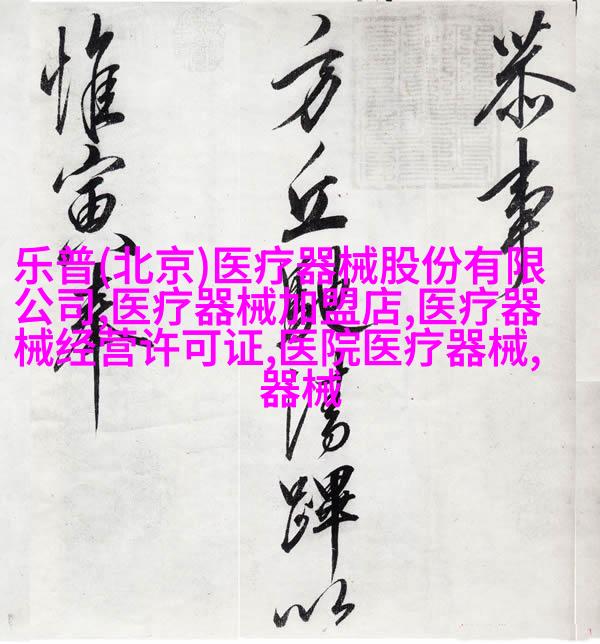 恭事
方丘蹕以
惟寅奉
乐普(北京)医疗器械股份有限
公司,医疗器械加盟店,医疗器
械经营许可证,医院医疗器械,
器械